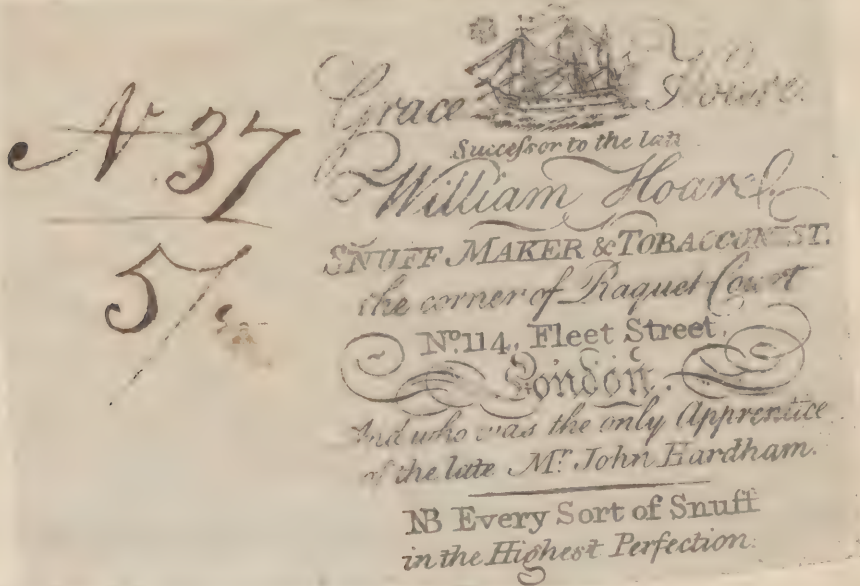 N 37
5/
Grace Hoare.
Succeſsor to the late
William Hoare
SNUFF MAKER & TOBACCONIST.
the corner of Raquet Court
No. 114, Fleet Street.
London.
And who was the only Apprentice
of the late Mr. John Hardham.
NB Every Sort of Snuff
in the Highest Perfection.